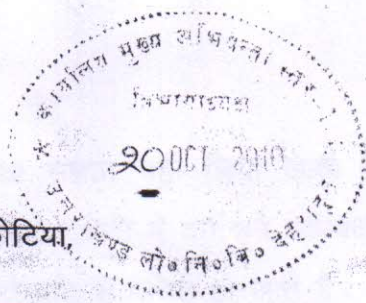 कार्यालय मुख्य अभियन्ता स्तर-1
विभागाध्यक्ष
20 OCT 2010
उत्तराखण्ड लो०नि०वि० देहरादून